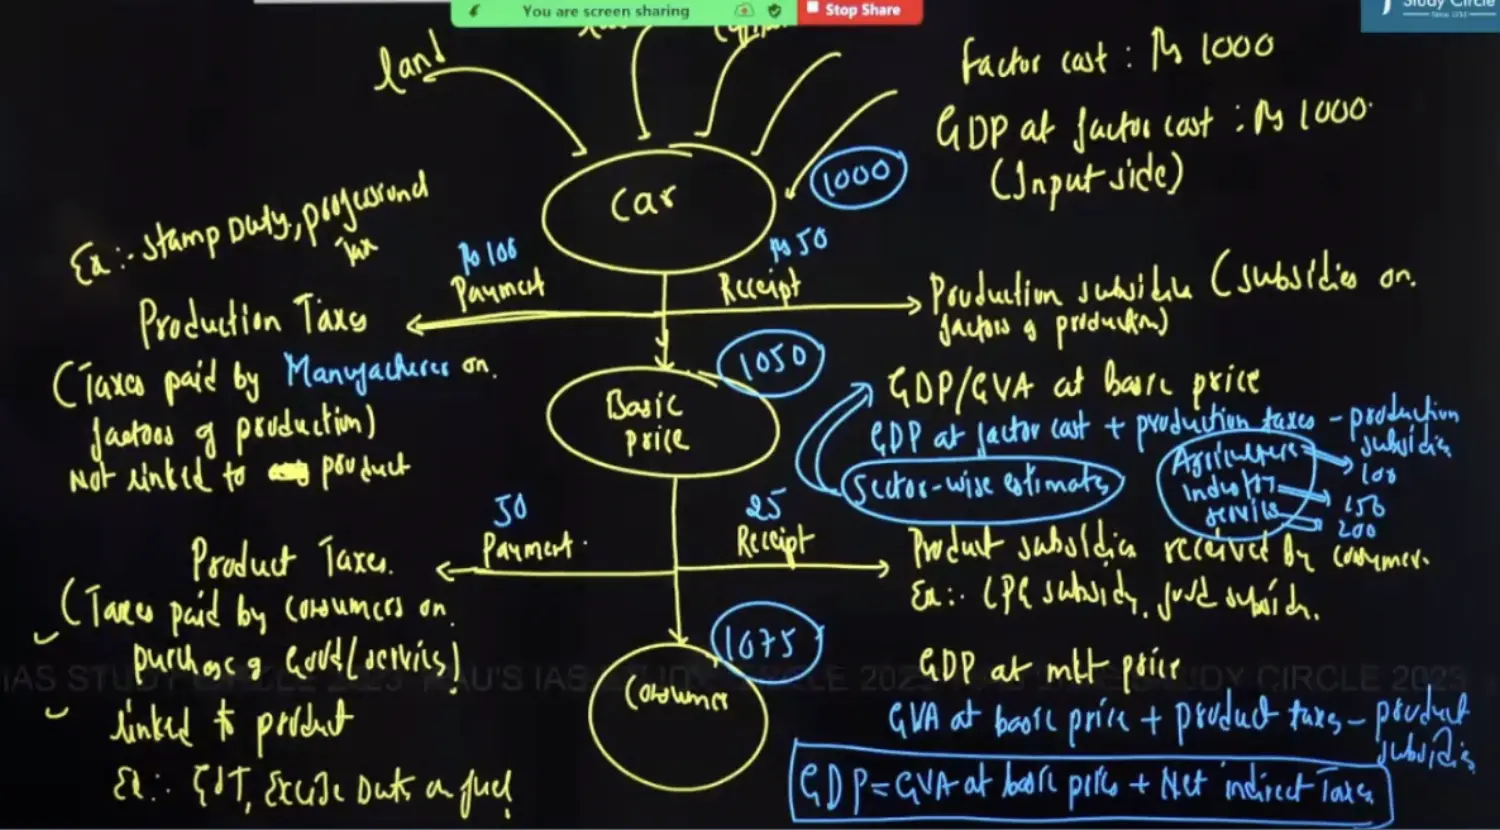 You are screen sharing
Stop Share
Study Circle
land
Factor cost : Rs 1000
GDP at factor cost : Rs 1000
(Input side)
Car
1000
Ex:- Stamp Duty, professional
Tax
Rs 100
Payment
Rs 50
Receipt
Production Taxes
(Taxes paid by Manufacturers on
factors of production)
Not linked to product
Production subsidies (subsidies on
factors of production)
1050
Basic
price
GDP/GVA at basic price
GDP at factor cost + production taxes - production
subsidies
Sector-wise estimates
Agriculture 100
industry 150
service 200
50
Payment.
25
Receipt
Product Taxes.
(Taxes paid by consumers on
purchase of Good/services)
linked to product
Ex:. GST, Excise Duty on fuel
Product subsidies received by consumer.
Ex:. LPG subsidy, food subsidy.
1075
Consumer
GDP at mkt price
GVA at basic price + product taxes - product
subsidies
GDP = GVA at basic price + Net indirect Taxes